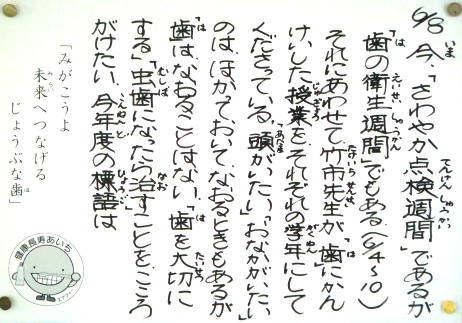 6/8 今、「さわやか点検週間」であるが
「歯の衛生週間」でもある(6/4〜10)
それにあわせて竹市先生が「歯」にかん
けいした授業をそれぞれの学年にして
くださっている。「頭がいたい」「おなかがいたい」
のは、ほかておいて、なおるときもあるが
「歯は、なおることはない。「歯を大切に
する」「虫歯になったら治す」ことをこころ
がけたい。今年度の標語は
「みがこうよ
未来へつなげる
じょうぶな歯」
健康長寿あいち